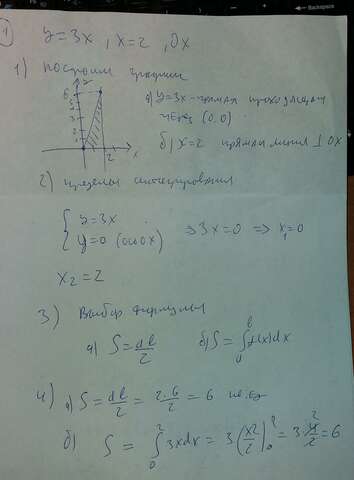 1
y=3x , x=2 , Ox
1) построим графики
y
6
5
4
3
2
1
2
x
а) y=3x - прямая проходящая
через (0,0)
б) x=2 прямая линия ⊥ OX
2) пределы интегрирования
{ y=3x
y=0 (ось OX) => 3x=0 => x₁=0
x₂=2
3) Выбор формулы
а) S = ab/2 б) S = ∫ₐᵇ f(x)dx
4) а) S = ab/2 = 2·6/2 = 6 кв.ед
б) S = ∫₀² 3xdx = 3(x2/2)|₀² = 3 4/2 = 6
Backspace